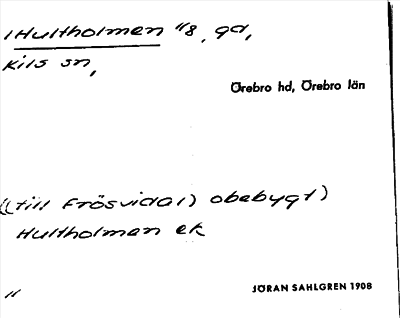 1 Hultholmen 1/8, gd,
Kils sn,
Örebro hd, Örebro län
((till Frösvidal) obebygt)
Hultholmen ek
"
JÖRAN SAHLGREN 1908